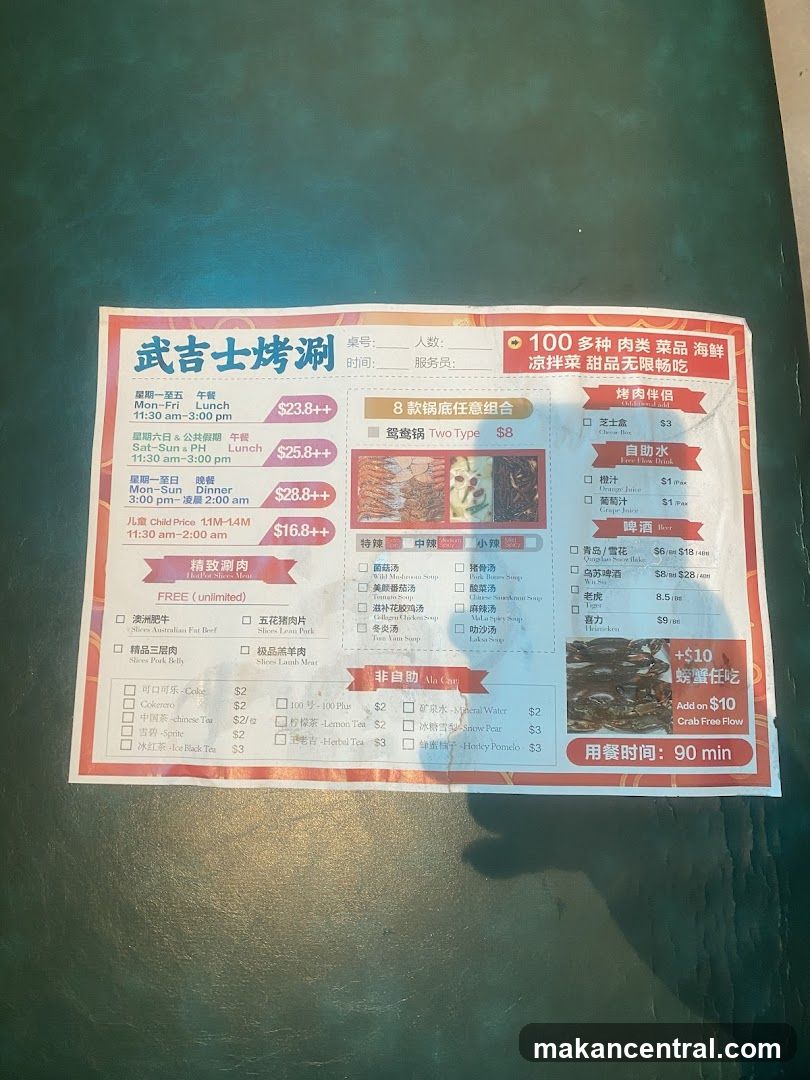 武吉士烤涮
桌号: 人数:
时间: 服务员:
100 多种 肉类 菜品 海鲜
凉拌菜 甜品无限畅吃
星期一至五 午餐
Mon-Fri Lunch
11:30 am-3:00 pm
$23.8++
星期六日 & 公共假期 午餐
Sat-Sun & PH Lunch
11:30 am-3:00 pm
$25.8++
星期一至日 晚餐
Mon-Sun Dinner
3:00 pm-凌晨 2:00 am
$28.8++
儿童 Child Price 1.1M-1.4M
11:30 am-2:00 am
$16.8++
精致涮肉
HotPot Slices Meat
FREE (unlimited)
澳洲肥牛
Slices Australian Fat Beef
五花猪肉片
Slices Lean Pork
精品三层肉
Slices Pork Belly
极品羔羊肉
Slices Lamb Meat
8 款锅底任意组合
鸳鸯锅 Two Type $8
特辣 中辣 Medium Spicy 小辣
菌菇汤
Wild Mushroom Soup
猪骨汤
Pork Bones Soup
美颜番茄汤
Tomato Soup
酸菜汤
Chinese Sauerkraut Soup
滋补花胶鸡汤
Collagen Chicken Soup
麻辣汤
MaLa Spicy Soup
冬炎汤
Tom Yam Soup
叻沙汤
Laksa Soup
烤肉伴侣
芝士盒 $3
Cheese Box
自助水
Free Flow Drink
橙汁 $1 /Pax
Orange Juice
葡萄汁 $1 /Pax
Grape Juice
啤酒 Beer
青岛 / 雪花 $6/Btl $18 /4Btl
乌苏啤酒 $8/Btl $28 /4Btl
Wu Su
老虎 8.5 /Btl
Tiger
喜力 $9 /Btl
Heineken
+$10
螃蟹任吃
Add on $10
Crab Free Flow
用餐时间: 90 min
非自助 Ala Cart
可口可乐 -Coke $2
Cokerero $2
中国茶 -chinese Tea $2/位
雪碧 -Sprite $2
冰红茶 -Ice Black Tea $3
100 号 - 100 Plus $2
柠檬茶 -Lemon Tea $2
王老吉 -Herbal Tea $3
矿泉水 -Mineral Water $2
冰糖雪梨 -Snow Pear $3
蜂蜜柚子 -Honey Pomelo $3
makancentral.com